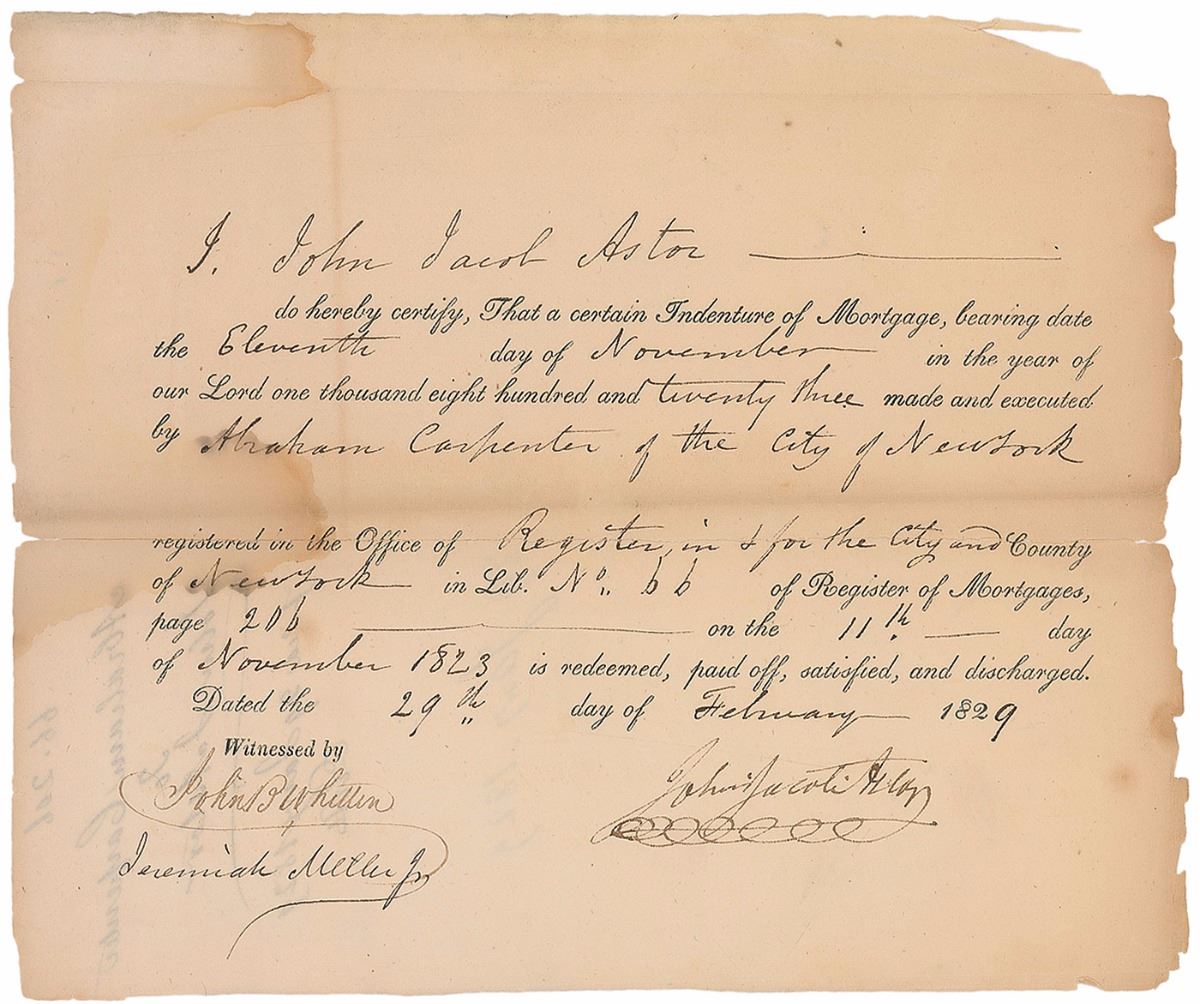 I. John Jacob Astor
do hereby certify, That a certain Indenture of Mortgage, bearing date
the Eleventh day of November in the year of
our Lord one thousand eight hundred and twenty three made and executed
by Abraham Carpenter of the City of New York
registered in the Office of Register, in & for the City and County
of New York in Lib. No. 66 of Register of Mortgages,
page 206 on the 11th day
of November 1823 is redeemed, paid off, satisfied, and discharged.
Dated the 29th day of February 1829
Witnessed by
John B Whitten
John Jacob Astor
Jeremiah Miller Jr